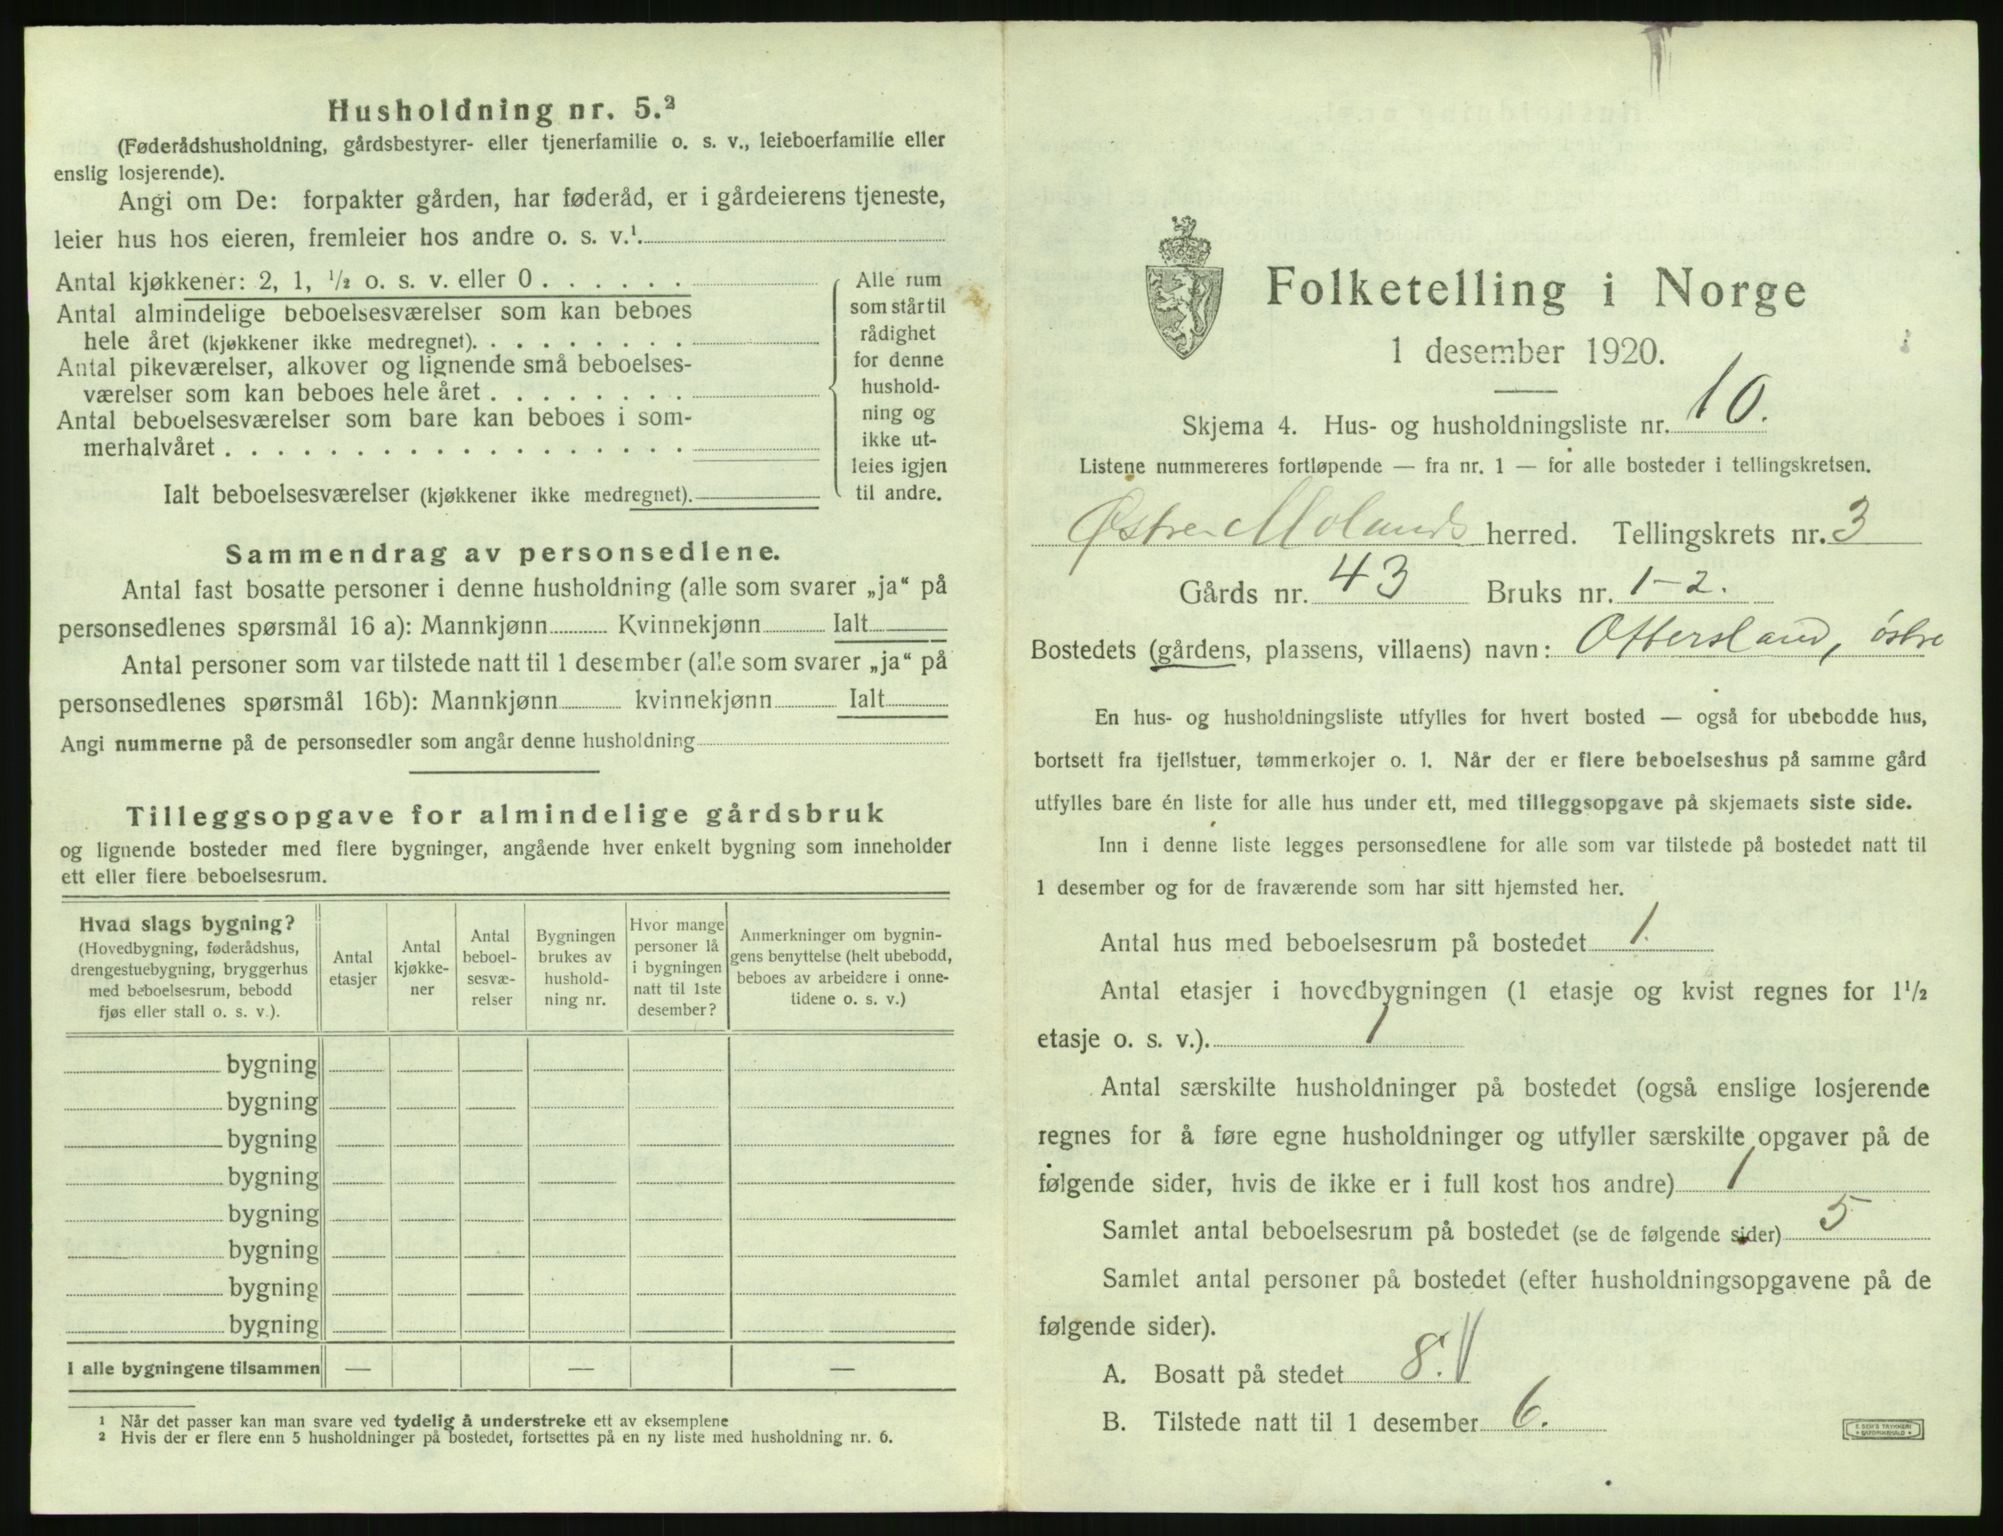 Husholdning nr. 5.²
(Føderådshusholdning, gårdsbestyrer- eller tjenerfamilie o. s. v., leieboerfamilie eller
enslig losjerende).
Angi om De: forpakter gården, har føderåd, er i gårdeierens tjeneste,
leier hus hos eieren, fremleier hos andre o. s. v.¹.
Antal kjøkkener: 2, 1, ½ o. s. v. eller 0 . . . . . .
Antal almindelige beboelsesværelser som kan beboes
hele året (kjøkkener ikke medregnet). . . . . . . . .
Antal pikeværelser, alkover og lignende små beboelses-
værelser som kan beboes hele året . . . . . . . .
Antal beboelsesværelser som bare kan beboes i som-
merhalvåret . . . . . . . . . . . . . . . . . .
Ialt beboelsesværelser (kjøkkener ikke medregnet).
Alle rum
som står til
rådighet
for denne
hushold-
ning og
ikke ut-
leies igjen
til andre.
Sammendrag av personsedlene.
Antal fast bosatte personer i denne husholdning (alle som svarer „ja“ på
personsedlenes spørsmål 16 a): Mannkjønn Kvinnekjønn Ialt
Antal personer som var tilstede natt til 1 desember (alle som svarer „ja“ på
personsedlenes spørsmål 16b): Mannkjønn kvinnekjønn Ialt
Angi nummerne på de personsedler som angår denne husholdning
Tilleggsopgave for almindelige gårdsbruk
og lignende bosteder med flere bygninger, angående hver enkelt bygning som inneholder
ett eller flere beboelsesrum.
Hvad slags bygning?
(Hovedbygning, føderådshus,
drengestuebygning, bryggerhus
med beboelsesrum, bebodd
fjøs eller stall o. s. v.).
Antal
etasjer
Antal
kjøkke-
ner
Antal
beboel-
sesvæ-
relser
Bygningen
brukes av
hushold-
ning nr.
Hvor mange
personer lå
i bygningen
natt til 1ste
desember?
Anmerkninger om bygnin-
gens benyttelse (helt ubebodd,
beboes av arbeidere i onne-
tidene o. s. v.)
bygning
bygning
bygning
bygning
bygning
bygning
bygning
bygning
I alle bygningene tilsammen — — —
¹ Når det passer kan man svare ved tydelig å understreke ett av eksemplene
² Hvis der er flere enn 5 husholdninger på bostedet, fortsettes på en ny liste med husholdning nr. 6.
Folketelling i Norge
1 desember 1920.
Skjema 4. Hus- og husholdningsliste nr. 10.
Listene nummereres fortløpende — fra nr. 1 — for alle bosteder i tellingskretsen.
Østre Molands herred. Tellingskrets nr. 3
Gårds nr. 43 Bruks nr. 1-2.
Bostedets (gårdens, plassens, villaens) navn: Ottersland, østre
En hus- og husholdningsliste utfylles for hvert bosted — også for ubebodde hus,
bortsett fra fjellstuer, tømmerkojer o. l. Når der er flere beboelseshus på samme gård
utfylles bare én liste for alle hus under ett, med tilleggsopgave på skjemaets siste side.
Inn i denne liste legges personsedlene for alle som var tilstede på bostedet natt til
1 desember og for de fraværende som har sitt hjemsted her.
Antal hus med beboelsesrum på bostedet 1.
Antal etasjer i hovedbygningen (1 etasje og kvist regnes for 1½
etasje o. s. v.). 1
Antal særskilte husholdninger på bostedet (også enslige losjerende
regnes for å føre egne husholdninger og utfyller særskilte opgaver på de
følgende sider, hvis de ikke er i full kost hos andre) 1
Samlet antal beboelsesrum på bostedet (se de følgende sider) 5
Samlet antal personer på bostedet (efter husholdningsopgavene på de
følgende sider).
A. Bosatt på stedet 8.
B. Tilstede natt til 1 desember 6.